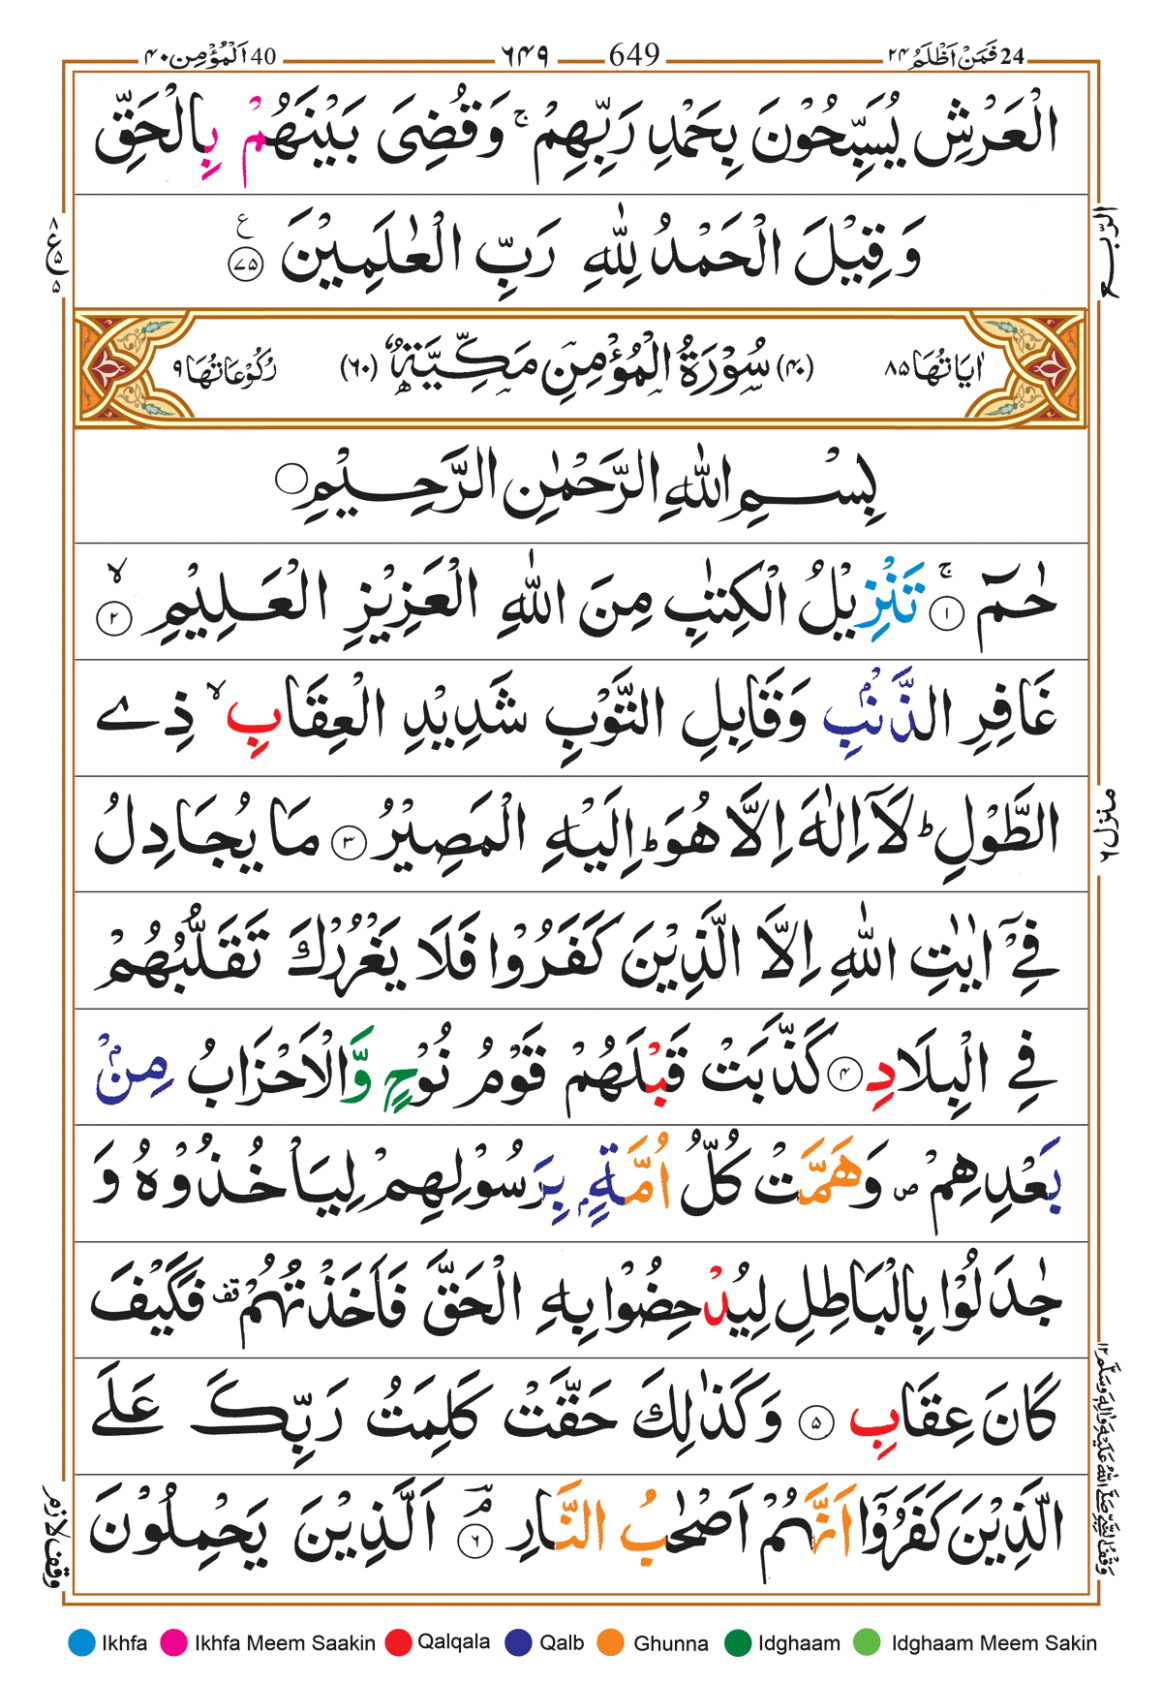 24 فَمَنْ اَظْلَمُ ۲۴
649 ۶۴۹
40 اَلْمُؤْمِن ۴۰
الْعَرْشِ یُسَبِّحُوْنَ بِحَمْدِ رَبِّهِمْ ۚ وَقُضِیَ بَیْنَهُمْ بِالْحَقِّ
وَقِیْلَ الْحَمْدُ لِلّٰهِ رَبِّ الْعٰلَمِیْنَ ﴿۷۵﴾ ع
الرّبع
اٰیَاتُهَا ۸۵ (۴۰) سُوْرَةُ الْمُؤْمِنِ مَكِّیَّةٌ (۶۰) رُكُوْعَاتُهَا ۹
بِسْمِ اللّٰهِ الرَّحْمٰنِ الرَّحِیْمِ
حٰمٓ ﴿۱﴾ ۚ تَنْزِیْلُ الْكِتٰبِ مِنَ اللّٰهِ الْعَزِیْزِ الْعَلِیْمِ ﴿۲﴾ ۙ
غَافِرِ الذَّنْۢبِ وَقَابِلِ التَّوْبِ شَدِیْدِ الْعِقَابِ ۙ ذِی
الطَّوْلِ ؕ لَاۤ اِلٰهَ اِلَّا هُوَ ؕ اِلَیْهِ الْمَصِیْرُ ﴿۳﴾ مَا یُجَادِلُ
منزل ۶
فِیْۤ اٰیٰتِ اللّٰهِ اِلَّا الَّذِیْنَ كَفَرُوْا فَلَا یَغْرُرْكَ تَقَلُّبُهُمْ
فِی الْبِلَادِ ﴿۴﴾ كَذَّبَتْ قَبْلَهُمْ قَوْمُ نُوْحٍ وَّالْاَحْزَابُ مِنْۢ
بَعْدِهِمْ ۪ وَهَمَّتْ كُلُّ اُمَّةٍۭ بِرَسُوْلِهِمْ لِیَاْخُذُوْهُ وَ
جٰدَلُوْا بِالْبَاطِلِ لِیُدْحِضُوْا بِهِ الْحَقَّ فَاَخَذْتُهُمْ قف فَكَیْفَ
كَانَ عِقَابِ ﴿۵﴾ وَكَذٰلِكَ حَقَّتْ كَلِمَتُ رَبِّكَ عَلَی
الَّذِیْنَ كَفَرُوْۤا اَنَّهُمْ اَصْحٰبُ النَّارِ ﴿۶﴾ ۘ اَلَّذِیْنَ یَحْمِلُوْنَ
وقف لازم
Ikhfa Ikhfa Meem Saakin Qalqala Qalb Ghunna Idghaam Idghaam Meem Sakin